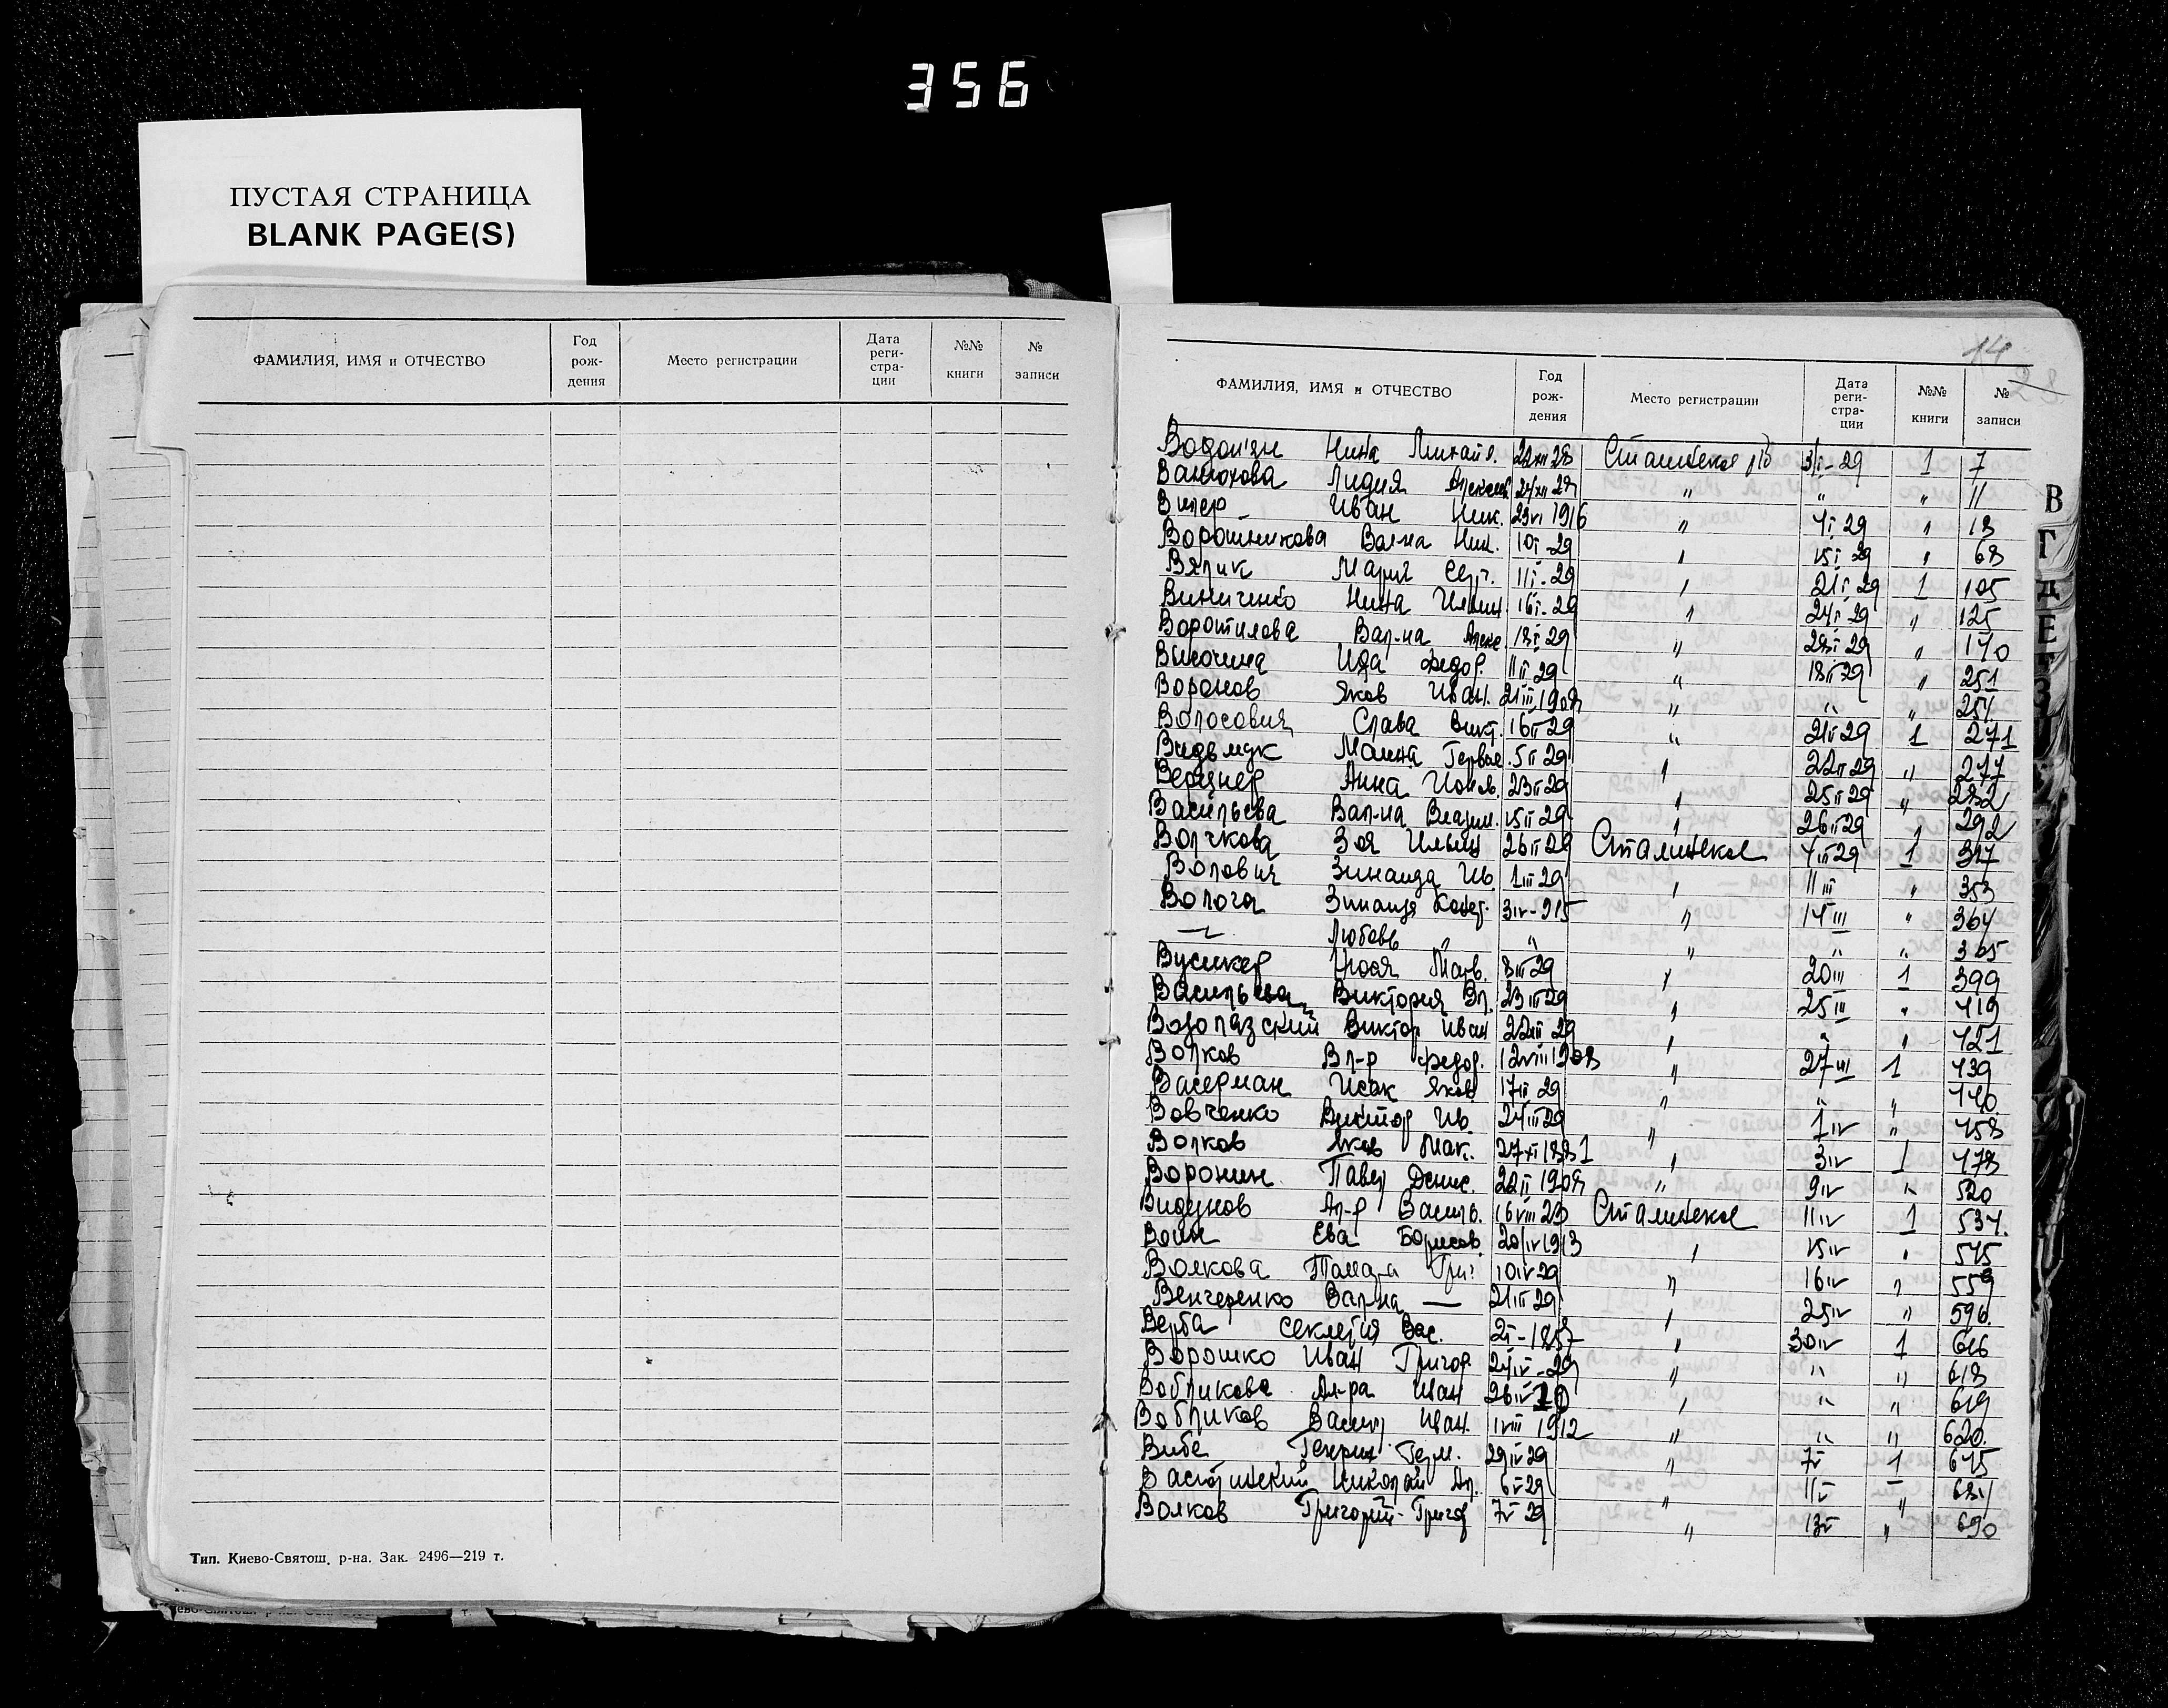 356
ПУСТАЯ СТРАНИЦА
BLANK PAGE(S)
ФАМИЛИЯ, ИМЯ и ОТЧЕСТВО Год рож- дения Место регистрации Дата реги- стра- ции №№ книги № записи
Тип. Киево-Святош. р-на. Зак. 2496—219 т.
14
28
ФАМИЛИЯ, ИМЯ и ОТЧЕСТВО Год рож- дения Место регистрации Дата реги- стра- ции №№ книги № записи
Нина Михайл. 22 XII 28 Сталинское 3/I-29 1 7
Лидия 24/XII 28 " " " 11
Иван Ник. 23 VI 1916 " 4 I 29 " 18
Ворошникова Вал-на Ник. 10 I-29 " 15 I 29 " 68
Вялик Мария Серг. 11 I-29 " 21 I 29 1 105
Винниченко Нина 16 I-29 " 24 I 29 " 125
Воротилова Вал-на Алекс. 18 I 29 " 29 I 29 " 170
Височина Ида Федор. 11 II 29 " 18 II 29 " 251
Воронов Яков Иван. 21 III 1908 " " " 254
Волосович Слава Викт. 16 II 29 " 21 II 29 1 271
Видьмук 5 II 29 " 22 II 29 " 277
Анна 23 II 29 " 25 II 29 " 282
Васильева Вал-на Владим. 15 II 29 " 26 II 29 " 292
Волчкова Зоя Ильин 26 II 29 Сталинское 4 III 29 1 317
Волович Зинаида Ив. 1 III 29 " 11 III " 353
Волога Зинаида 3 IV-915 " 14 III " 364
Любовь " " " " " 365
Матв. 8 III 29 " 20 III 1 399
Васильева Виктория Вл. 23 III 29 " 25 III " 419
Водолазский Виктор Иван 22 III 29 " " " 421
Волков Вл-р Федор. 12 VIII 1908 " 27 III 1 439
Васерман Исак Яков 17 II 29 " " " 440
Вовченко Виктор Ив. 24 III 29 " 1 IV " 458
Волков Яков Мак. 27 XI 1881 " 3 IV 1 478
Воронин Павел Денис. 22 II 1908 " 9 IV " 520
Видунов Ал-р Василь. 16 VIII 23 Сталинское 11 IV 1 534
Ева Борисов. 20/IV 1913 " 15 IV " 545
Волкова Григ 10 IV 29 " 16 IV " 559
Венчеренко Вал-на — 21 III 29 " 25 IV " 596
Верба Секлетия Вас. 2 I-1857 " 30 IV 1 616
Ворошко Иван Григор. 24 IV-29 " " " 618
Вобликова Ал-ра Иван 26 IV 10 " " " 619
Вобликов Васил Иван. 1 VIII 1912 " " " 620
Вибе Генрих Герм. 29 IV 29 " 7 V 1 645
Николай Ал. 6 V 29 " 11 V " 684
Волков Григорий Григор 7 V 29 " 13 V " 690
В
Г
Д
Е
З